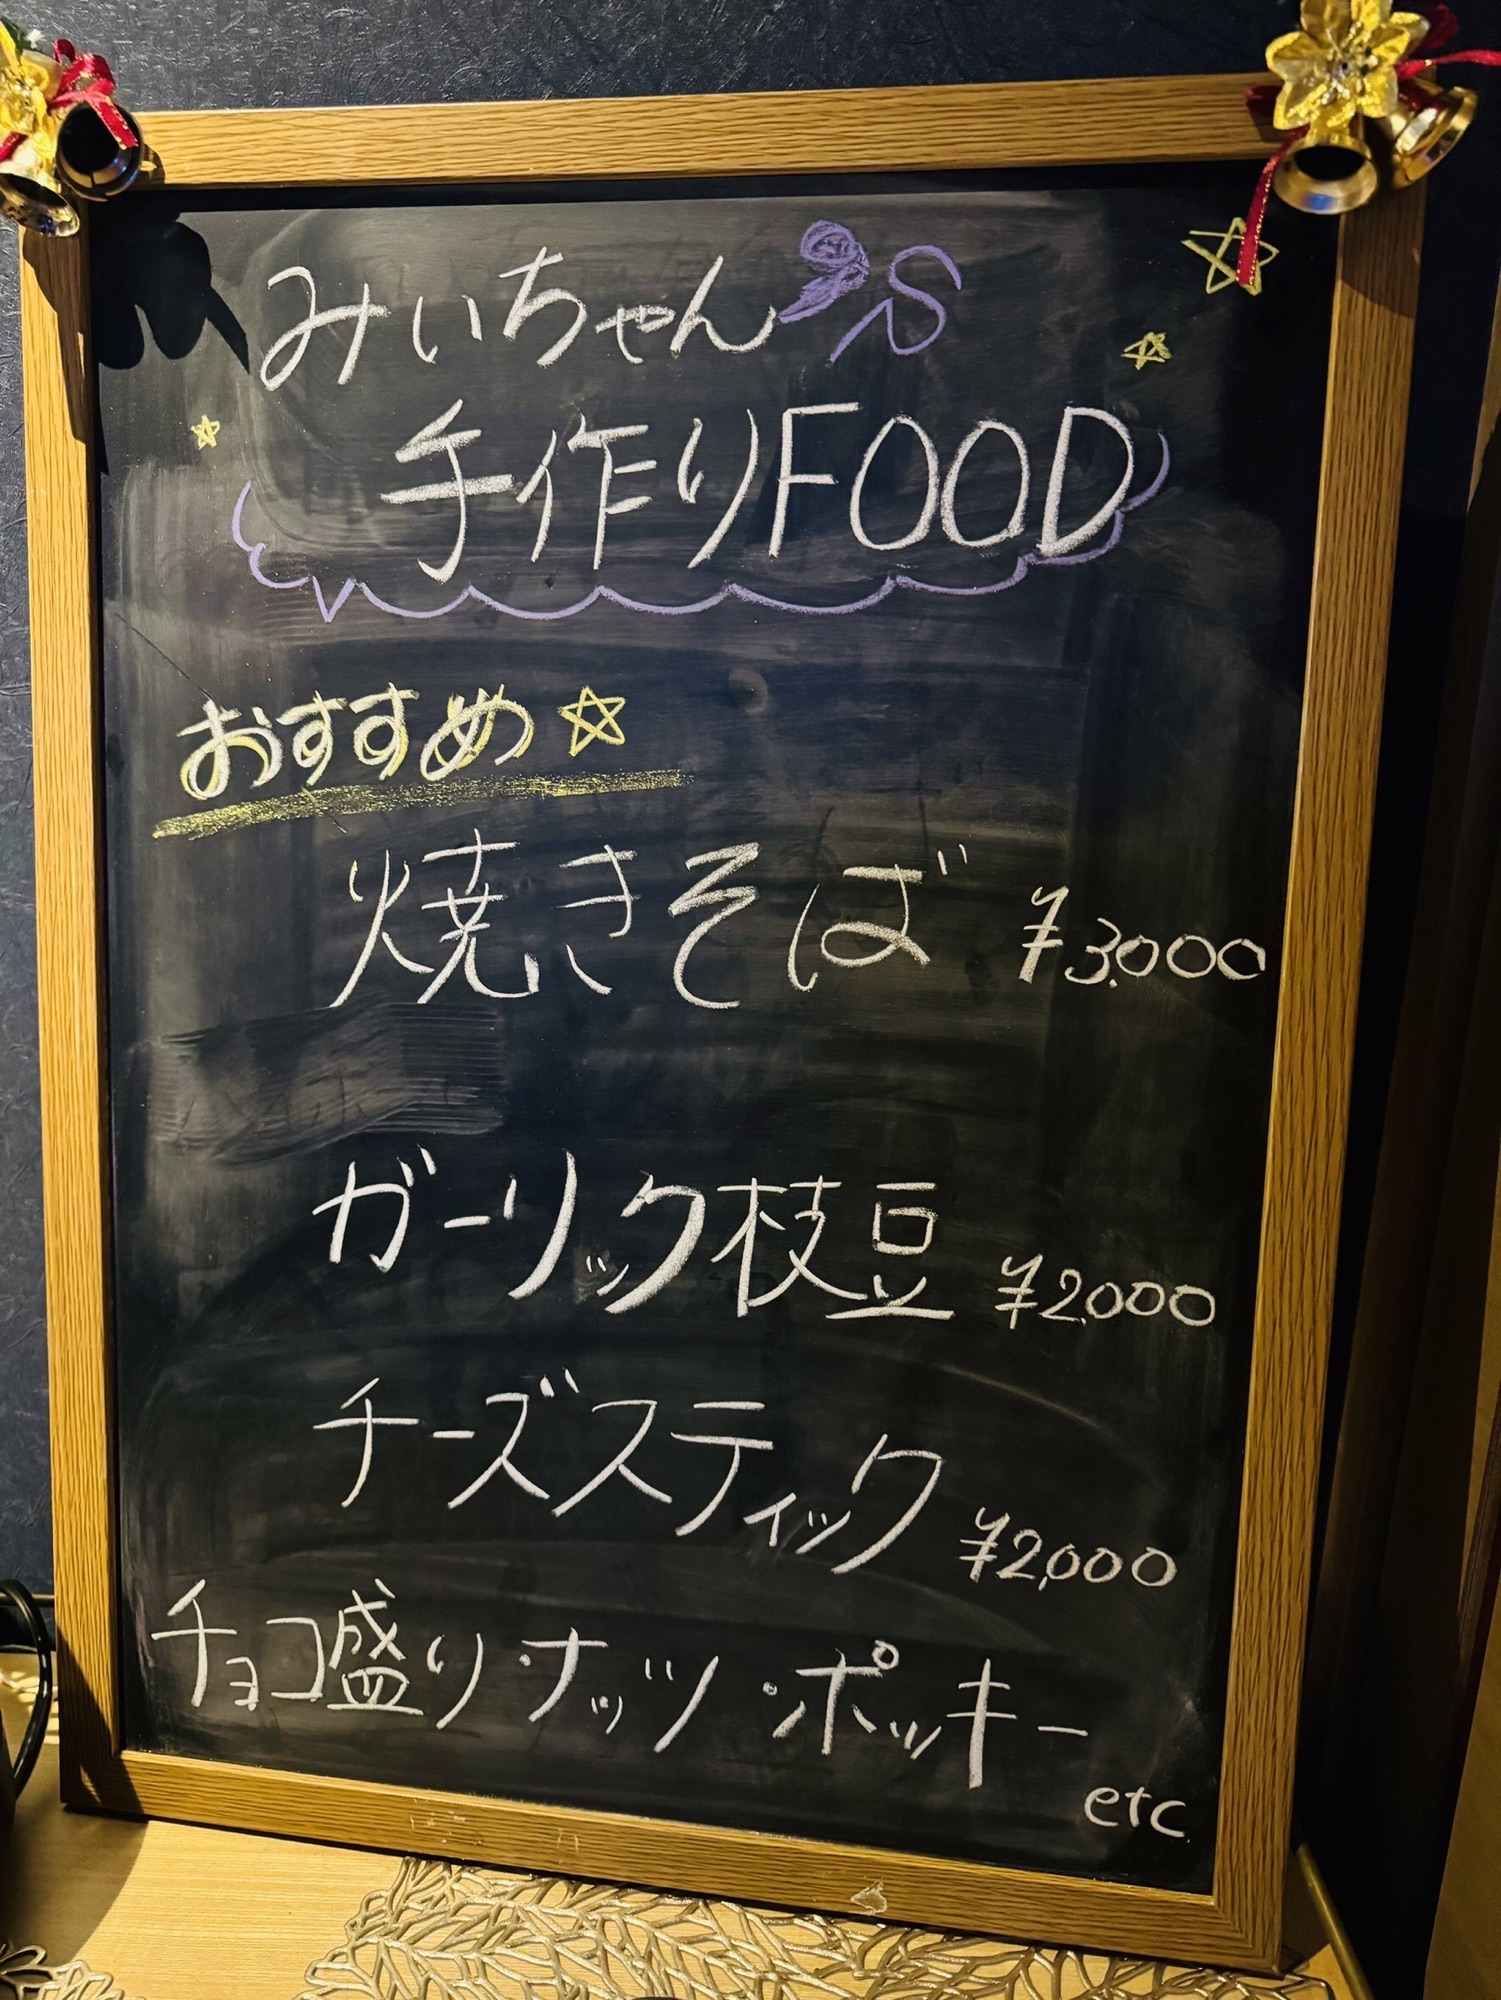 みいちゃん'S
手作りFOOD
おすすめ☆
焼きそば ¥3,000
ガーリック枝豆 ¥2,000
チーズスティック ¥2,000
チョコ盛り・ナッツ・ポッキー
etc